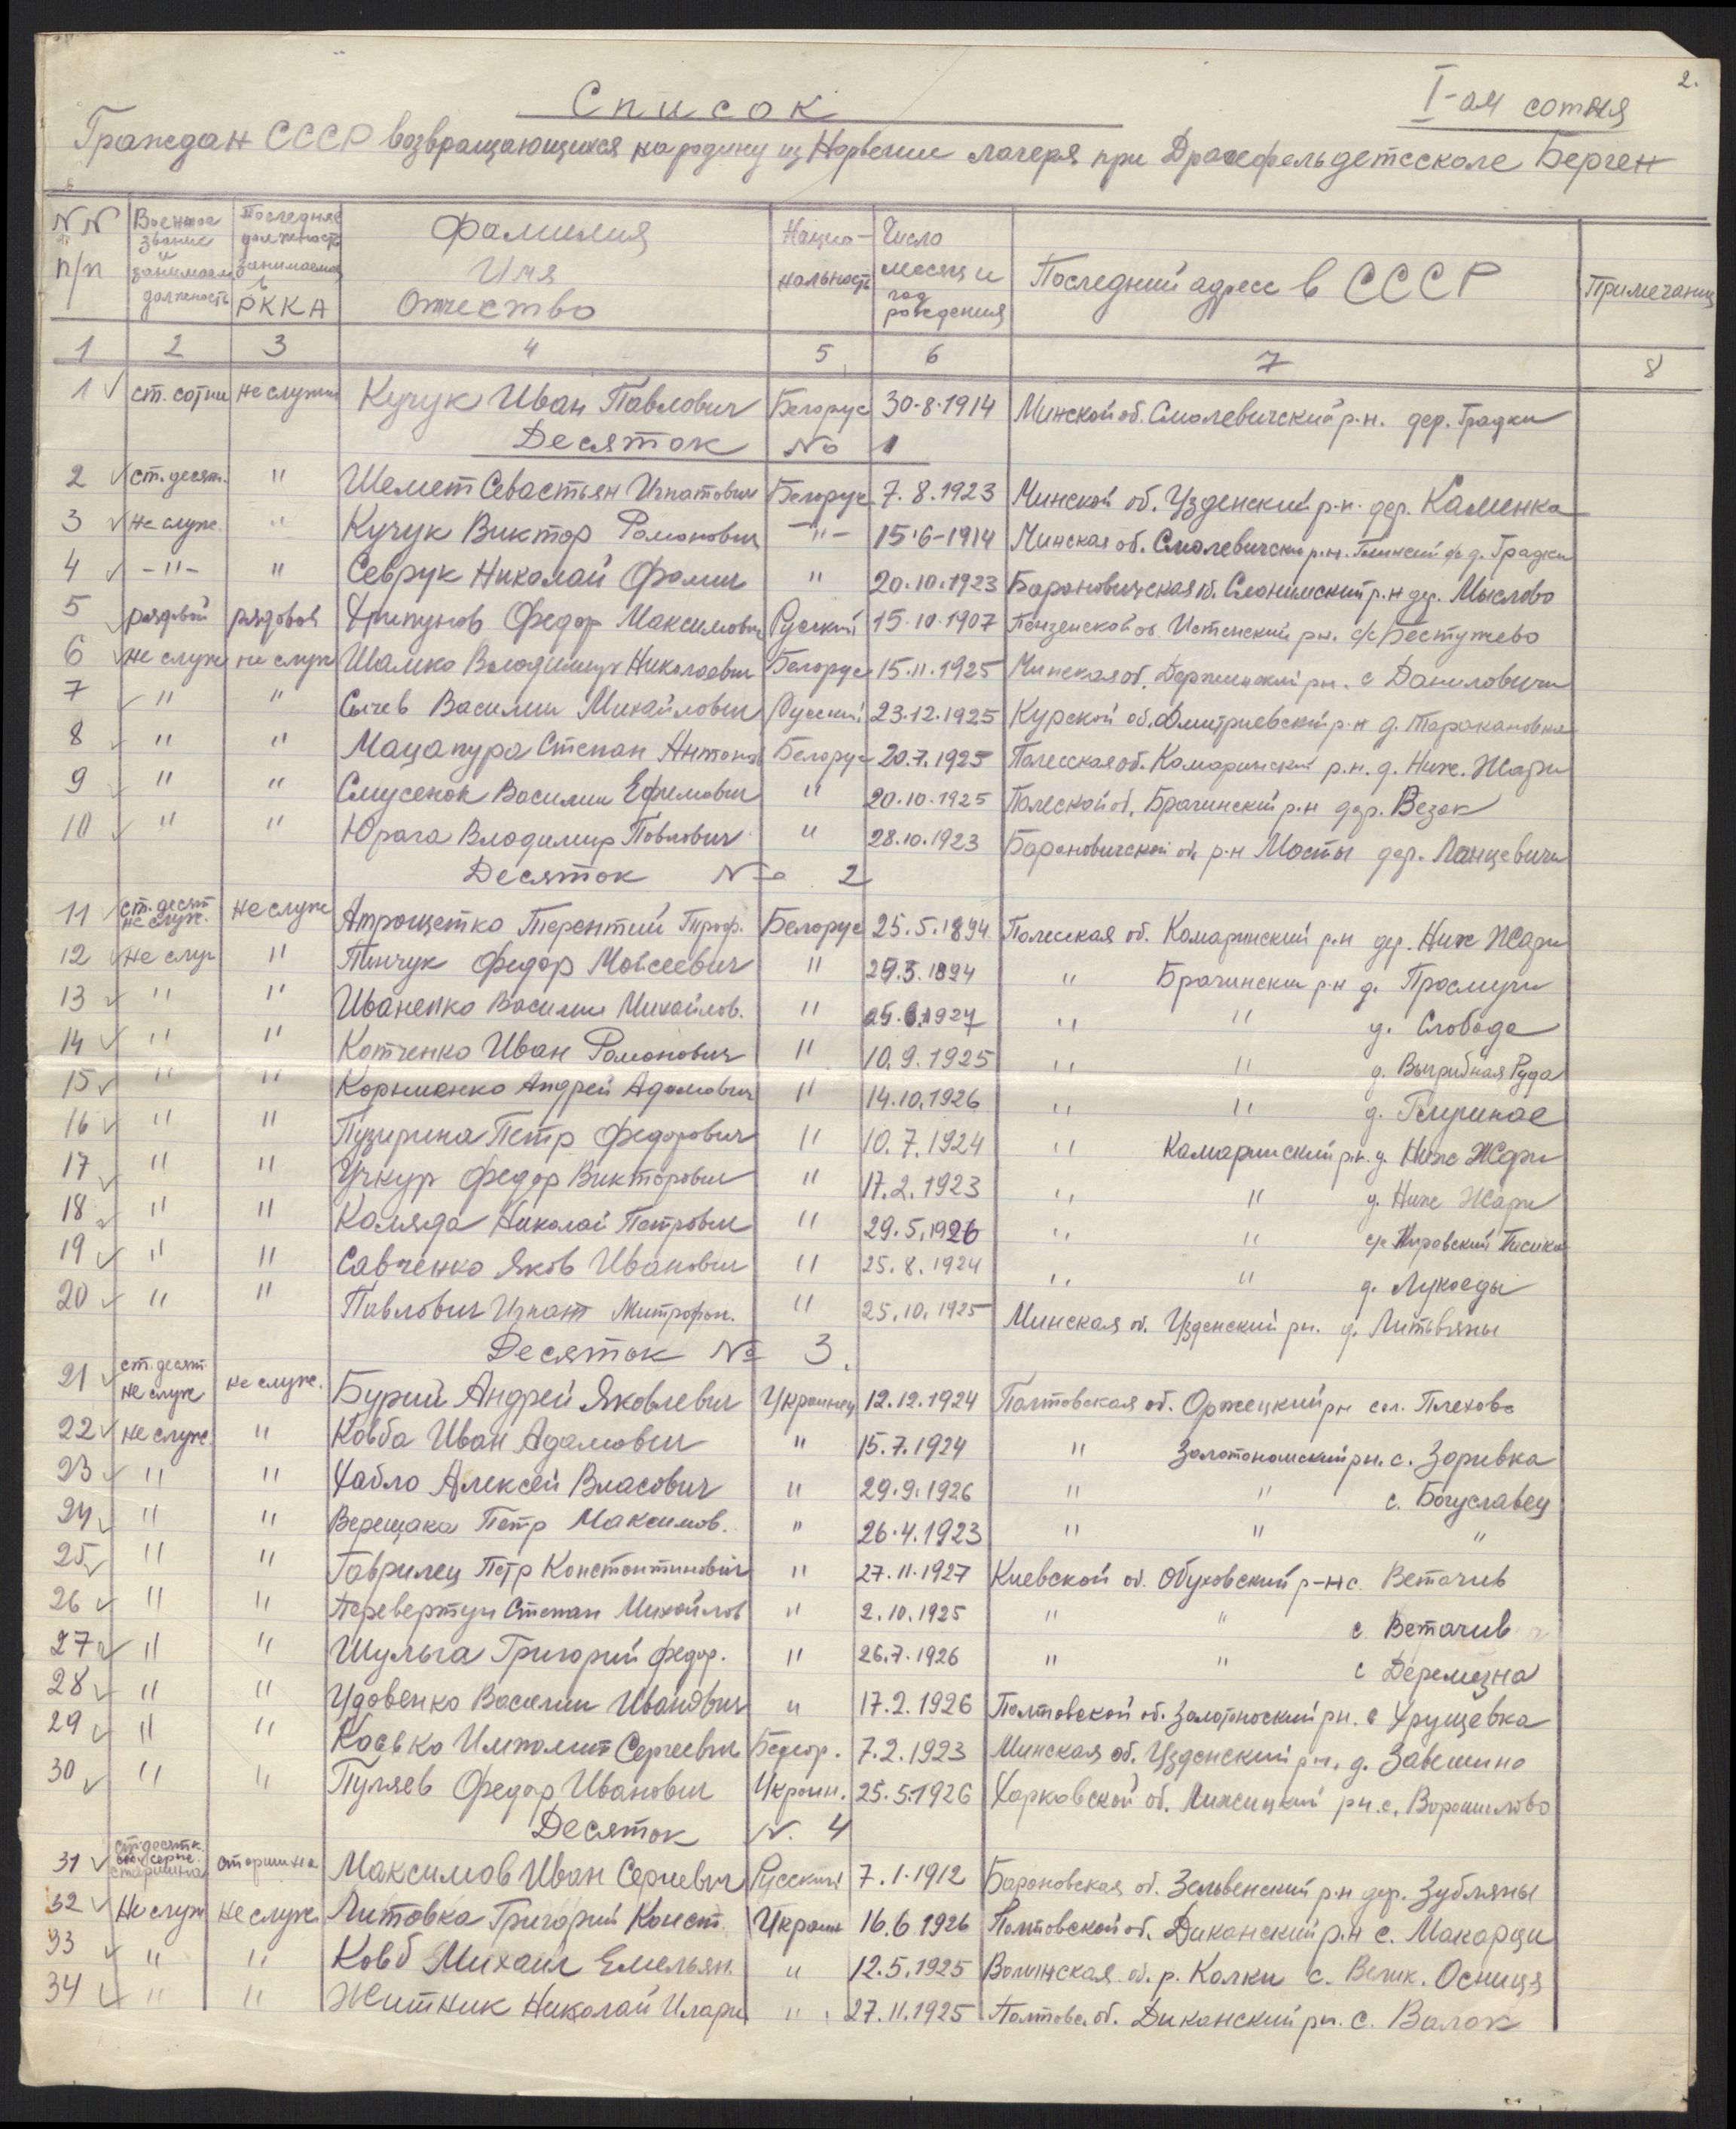 2.
Список
I-ая сотня
Граждан СССР возвращающихся на родину из Норвегии лагеря при Драгефельдетсколе Берген
N N п/п
Военное звание и занимаем должность
Последняя должность занимаемая в РККА
Фамилия Имя Отчество
Нацио-нальность
Число месяц и год рождения
Последний адресс в СССР
Примечание
1 2 3 4 5 6 7 8
1 ст. сотни не служил Кучук Иван Павлович Белорус 30-8-1914 Минской об. Смолевичский р-н. дер. Градки
Десяток No 1
2 ст. десят. " Шемет Севастьян Игнатович Белорус 7.8.1923 Минской об. Узденский р-н. дер. Каменка
3 не служ. " Кучук Виктор Романович -"- 15-6-1914 Минская об. Смолевичски р.н. д. Градки
4 -"- " Севрук Николай Фомич " 20.10.1923 Барановичская об. Слонимский р.н дер. Мыслово
5 рядовой рядовой Хрипунов Федор Максимович Русский 15.10.1907 Пензенской об. рн. с/с Бестужево
6 не служ не служ Шамко Володимир Николаевич Белорус 15.11.1925 Минская об. Держинский рн. с Даниловичи
7 " " Сычев Василии Михайлович Русский 23.12.1925 Курской об. Дмитриевский р-н д. Таракановка
8 " " Мацапура Степан Антонов Белорус 20.7.1925 Полесская об. Комаринский р.н. д. Ниж. Жари
9 " " Смусенок Василии Ефимович " 20.10.1925 Полеской об. Брагинский р-н дер. Везок
10 " " Юрага Владимир Павлович " 28.10.1923 Барановичской об. р-н Мосты дер. Ланцевичи
Десяток No 2
11 ст. десят не служ. не служ Атрощенко Терентий Троф. Белорус 25.5.1894 Полесская об. Комаринский р-н дер. Ниж Жари
12 не слу " Тинчук Федор Мовсеевич " 29.3.1894 " Брагинский р-н д. Просмучи
13 " " Иваненко Василии Михайлов. " 25.6.1927 " " д. Слобода
14 " " Котченко Иван Романович " 10.9.1925 " " д. Выгрибная Руда
15 " " Корниенко Андрей Адамович " 14.10.1926 " " д.
16 " " Пузирина Петр Федорович " 10.7.1924 " Камаринский р.н. д. Ниж Жари
17 " " Учкур Федор Викторович " 17.2.1923 " " д. Ниж Жари
18 " " Коляда Николай Петрович " 29.5.1926 " " с/с Кировский
19 " " Савченко Яков Иванович " 25.8.1924 " " д. Лукоеды
20 " " Павлович Игнат Митрофон. " 25.10.1925 Минская об. Узденский рн. д. Литвяны
Десяток No 3.
21 ст. десят не служ не служ. Бурий Андрей Яковлевич Украинец 12.12.1924 Полтовская об. Оржецкий рн сел. Плехово
22 не служ. " Ковба Иван Адамович " 15.7.1924 " Золотоношский рн. с. Зоривка
23 " " Хабло Алексей Власович " 29.9.1926 " " с. Богуславец
24 " " Верещака Петр Максимов. " 26.4.1923 " " "
25 " " Гаврилец Петр Константинович " 27.11.1927 Киевской об. Обуховский р-н с. Витачив
26 " " Перевертун Степан Михойлов " 2.10.1925 " " с. Витачив
27 " " Шульга Григорий Федор. " 26.7.1926 " " с Деремезна
28 " " Удовенко Василии Иванович " 17.2.1926 Полтовской об. Золотоноский рн. с Хрущевка
29 " " Косько Имполит Сергеевич Белор. 7.2.1923 Минская об. Узденский рн. д. Завешино
30 " " Пуляев Федор Иванович Украин. 25.5.1926 Харковской об. рн. с. Ворошилово
Десяток N. 4
31 ст. десятк. старшина старшина Максимов Иван Сергиевич Русский 7.1.1912 Барановская об. Зельвенский р-н дер. Зубляны
32 Не служ не служ. Литовка Григорий Конст. Украин 16.6.1926 Полтовской об. Диканский р.н с. Макарци
33 " " Ковб Михаил Емельян. " 12.5.1925 Волинская об. р. Колки с. Велик. Осниця
34 " " Житник Николай Илари " 27.11.1925 Полтовс. об. Диканский рн. с. Валок